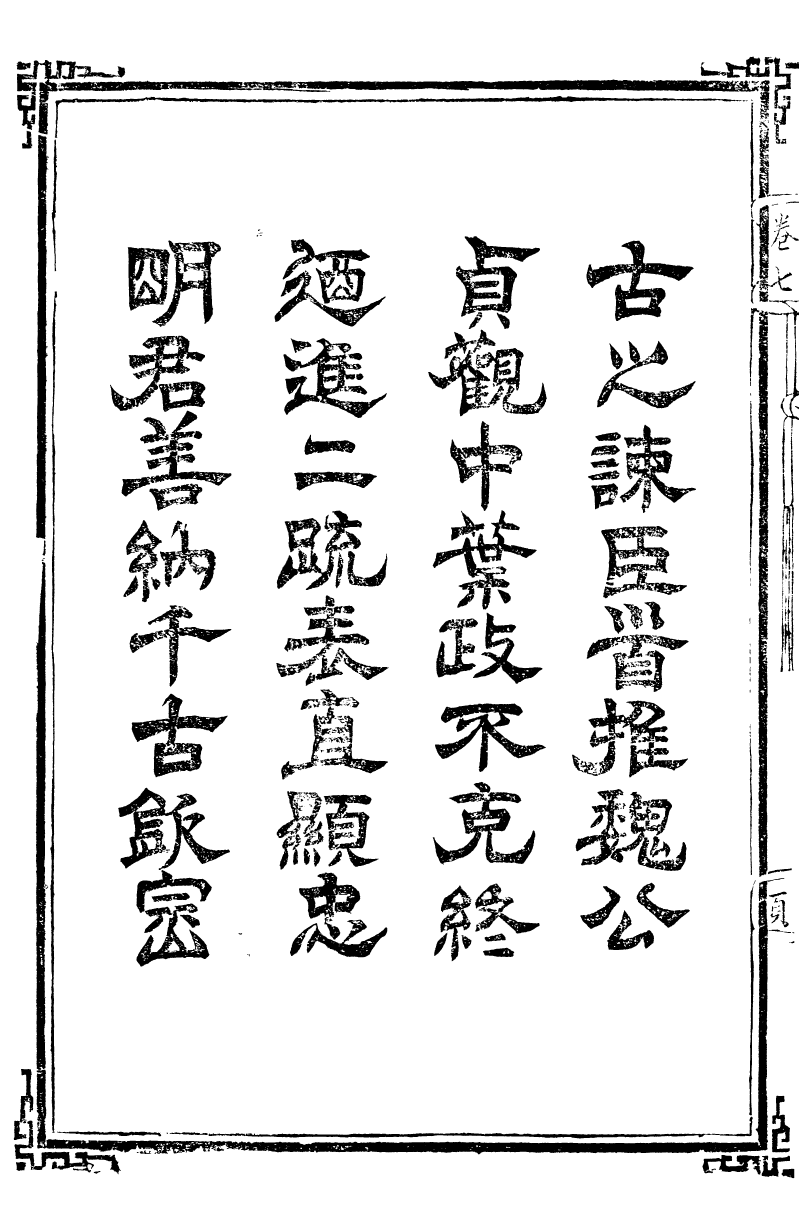 卷七
頁
古之諫臣首推魏公
貞觀中葉政不克終
迺進二疏表直顯忠
明君善納千古飯宗